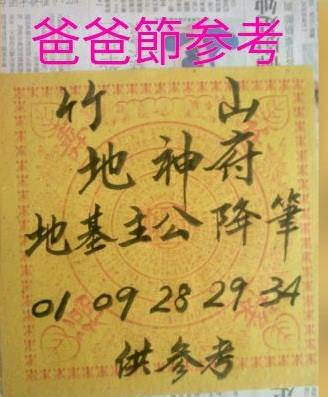 爸爸節参考
竹山
地神府
地基主公降筆
01 09 28 29 34
供參考